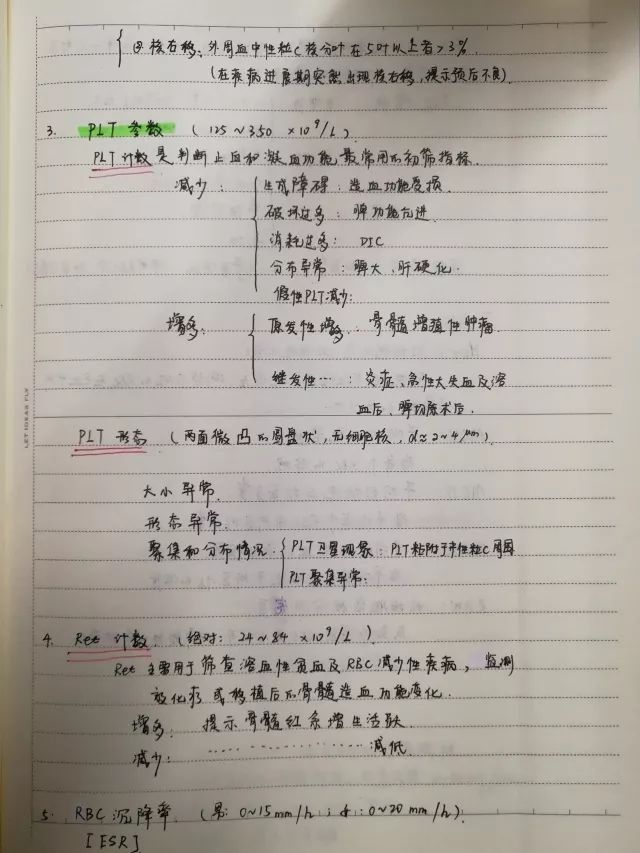 ② 核右移：外周血中性粒C核分叶在5叶以上者>3%.
(在疾病进展期突然出现核右移，提示预后不良)
3. PLT 参数 (125~350 ×10⁹/L)
PLT 计数是判断止血和凝血功能最常用的初筛指标.
减少： 生成障碍：造血功能受损.
破坏过多：脾功能亢进
消耗过多：DIC
分布异常：脾大、肝硬化.
假性PLT减少：
增多： 原发性增多：骨髓增殖性肿瘤.
继发性…：炎症、急性大失血及溶
血后、脾切除术后.
LET IDEAS FLY
PLT 形态 (两面微凸的圆盘状，无细胞核，d≈2~4μm)
大小异常.
形态异常.
聚集和分布情况. PLT卫星现象：PLT粘附于中性粒C周围
PLT聚集异常：
4. Ret 计数 (绝对：24~84 ×10⁹/L)
Ret 主要用于筛查溶血性贫血及RBC减少性疾病，监测
放化疗或移植后的骨髓造血功能变化.
增多：提示骨髓红系增生活跃
减少：…………减低
5. RBC 沉降率. (男：0~15mm/h；女：0~20mm/h).
[ESR]